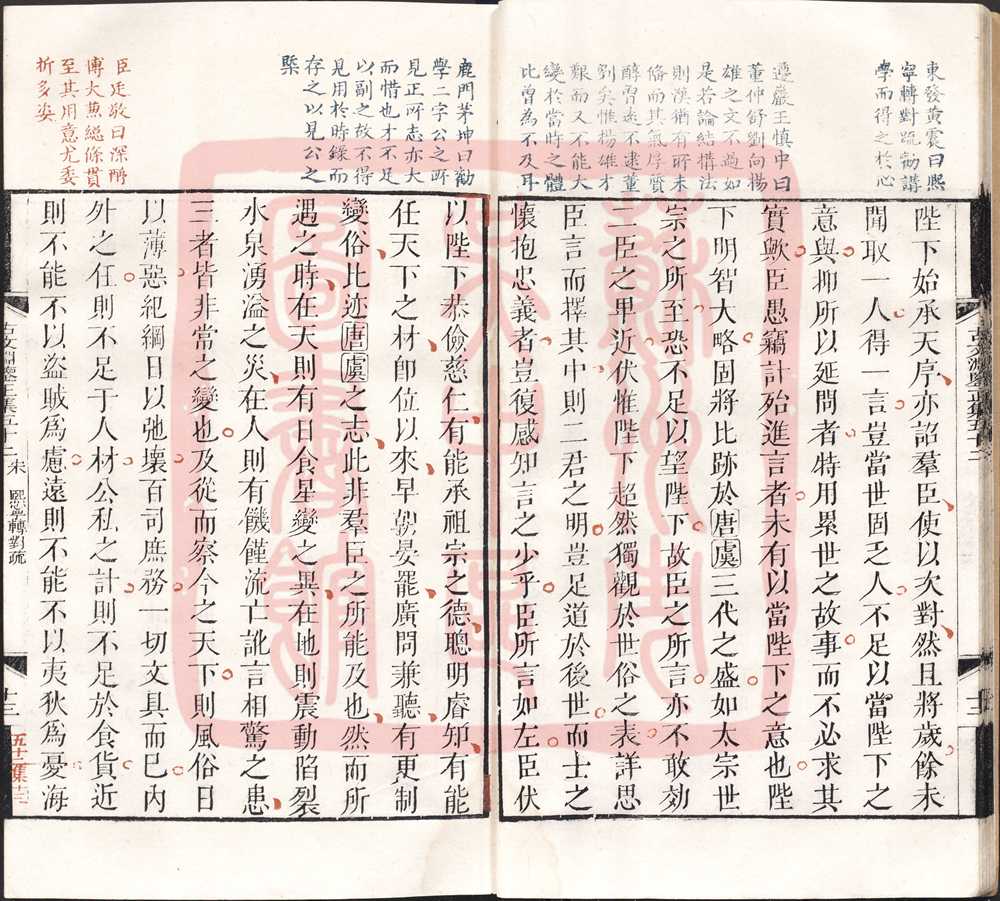 東發黃震曰熈
寧轉對疏勸講
學而得之於心
遵巖王慎中曰
董仲舒劉向楊
雄之文不過如
是若論結構法
則漢猶有所未
備而其氣厚質
醇曾遠不逮董
劉矣惟楊雄才
艱而又不能大
變於當時之體
比曽為不及耳
陛下始承天序亦詔羣臣使以次對然且將歲餘未
聞取一人得一言豈當世固乏人不足以當陛下之
意與抑所以延問者特用累世之故事而不必求其
實歟臣愚竊計殆進言者未有以當陛下之意也陛
下明智大略固將比跡於唐虞三代之盛如太宗世
宗之所至恐不足以望陛下故臣之所言亦不敢効
二臣之卑近伏惟陛下超然獨觀於世俗之表詳思
臣言而擇其中則二君之明豈足道於後世而士之
懷抱忠義者豈復感知言之少乎臣所言如左臣伏
鹿門茅坤曰勸
學二字公之所
見正所志亦大
而惜也才不足
以副之故不得
見用於時錄而
存之以見公之
槩
臣廷敬曰深醇
博大燕總條貫
至其用意尤委
折多姿
以陛下恭儉慈仁有能承祖宗之德聰明睿知有能
任天下之材即位以來早朝晏罷廣問兼聽有更制
變俗比迹唐虞之志此非羣臣之所能及也然而所
遇之時在天則有日食星變之異在地則震動陷裂
水泉湧溢之災在人則有饑饉流亡訛言相驚之患
三者皆非常之變也及從而察今之天下則風俗日
以薄惡紀綱日以弛壞百司庶務一切文具而已內
外之任則不足于人材公私之計則不足於食貨近
則不能不以盜賊為慮遠則不能不以夷狄為憂海
古文淵鑒正集五十二
宋
熙寧轉對疏
十三
五十二集十三